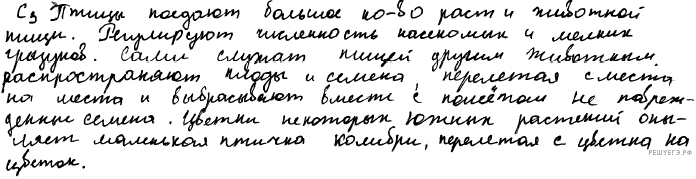 С3 Птицы поедают большое ко-во раст и животной
пищи. Регулируют численность насекомых и мелких
грызунов. Сами служат пищей другим животным.
распространяют плоды и семена, перелетая с места
на места и выбрасывают вместе с помётом не повреж-
денные семена. Цветки некоторых южных растений опы-
ляет маленькая птичка колибри, перелетая с цветка на
цветок.
РЕШУЕГЭ.РФ